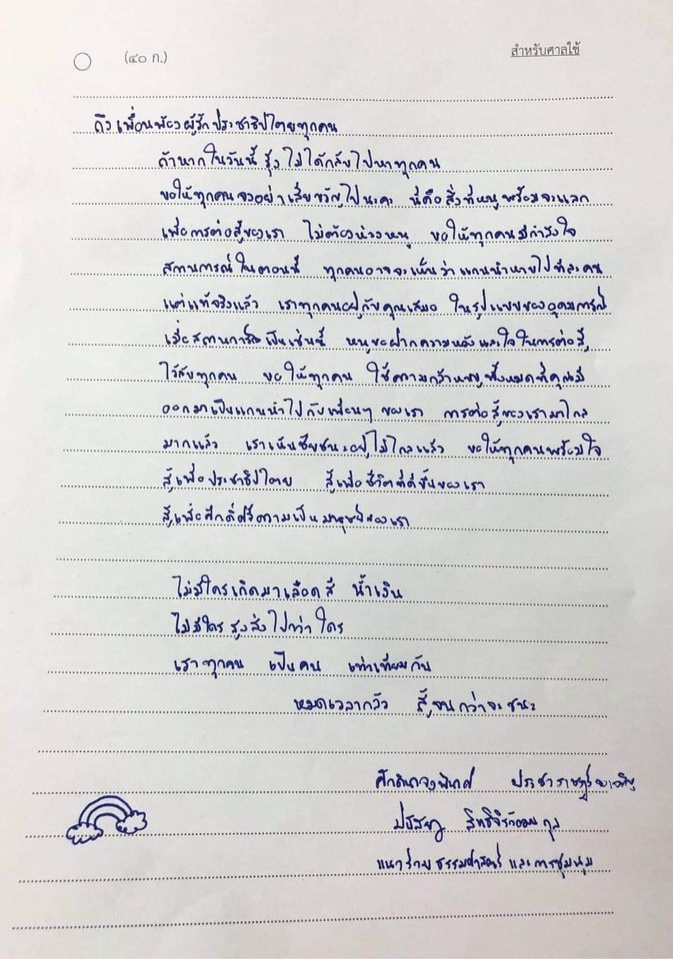 (๔๐ ก.)
สำหรับศาลใช้
ถึงเพื่อนพ้องผู้รักประชาธิปไตยทุกคน
ถ้าหากในวันนี้ รุ้ง ไม่ได้กลับไปหาทุกคน
ขอให้ทุกคนจงอย่าเสียขวัญไปนะคะ นี่คือสิ่งที่หนูพร้อมจะแลก
เพื่อการต่อสู้ของเรา ไม่ต้องห่วงหนู ขอให้ทุกคนมีกำลังใจ
สถานการณ์ในตอนนี้ ทุกคนอาจจะเห็นว่าแกนนำหายไปทีละคน
แต่แท้จริงแล้ว เราทุกคนอยู่กับคุณเสมอ ในรูปแบบของอุดมการณ์
เมื่อสถานการณ์เป็นเช่นนี้ หนูขอฝากความหวังและใจในการต่อสู้
ไว้กับทุกคน ขอให้ทุกคน ใช้ความกล้าหาญทั้งหมดที่คุณมี
ออกมาเป็นแกนนำไปกับเพื่อนๆ ของเรา การต่อสู้ของเรามาไกล
มากแล้ว เราเห็นชัยชนะอยู่ไม่ไกลแล้ว ขอให้ทุกคนพร้อมใจ
สู้เพื่อประชาธิปไตย สู้เพื่อชีวิตที่ดีขึ้นของเรา
สู้เพื่อศักดิ์ศรีความเป็นมนุษย์ของเรา
ไม่มีใครเกิดมาเลือดสี น้ำเงิน
ไม่มีใครสูงส่งไปกว่าใคร
เราทุกคน เป็นคน เท่าเทียมกัน
หมดเวลากลัว สู้จนกว่าจะชนะ
ศักดินาจงพินาศ ประชาราษฎร์จงเจริญ
ปนัสยา สิทธิจิรวัฒนกุล
แนวร่วมธรรมศาสตร์และการชุมนุม